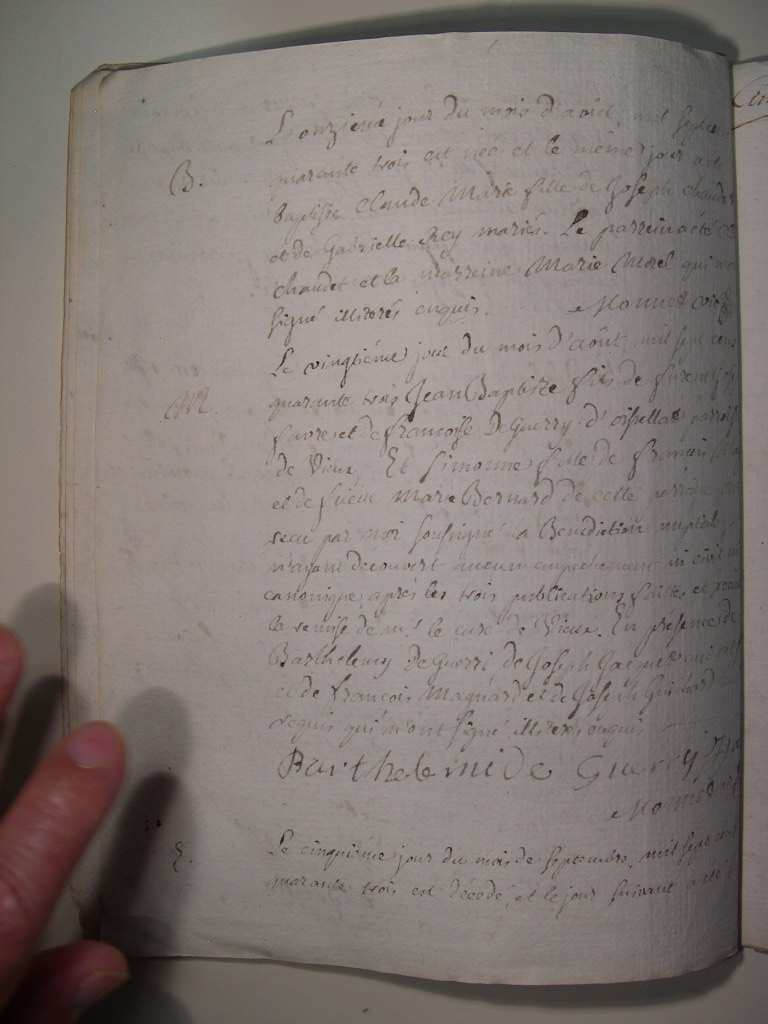 L'onzieme jour du mois d'août, mil sept cen
B. quarante trois est née et le même jour a été
baptisée Claude Marie fille de Joseph chaudet
et de Gabrielle Rey mariés. Le parrein a été
chaudet et la marreine Marie Morel qui n'ont
signé illiterés enquis. Monnet
Le vingtiéme jour du mois d'août mil sept cens
M. quarante trois Jean Baptiste fils de
favre et de francoise De Guerry d'
de Vieu Et Simonne fille de francois
et de Marie Bernard de cette
recu par moi soussigné la Benediction nuptiale,
n'ayant decouvert aucun empechement ni civil ni
canonique après les trois publications faittes et
la remise de mr. le curé de Vieu. En présence de
Barthelemy De Guerri de Joseph qui
et de francois Magnard et de Joseph Guichard
requis qui n'ont signé illiterés enquis
Barthelemi De Guerry
Monnet
S. Le cinquiéme jour du mois de septembre, mil sept cent
quarante trois est décedé, et le jour suivant a été